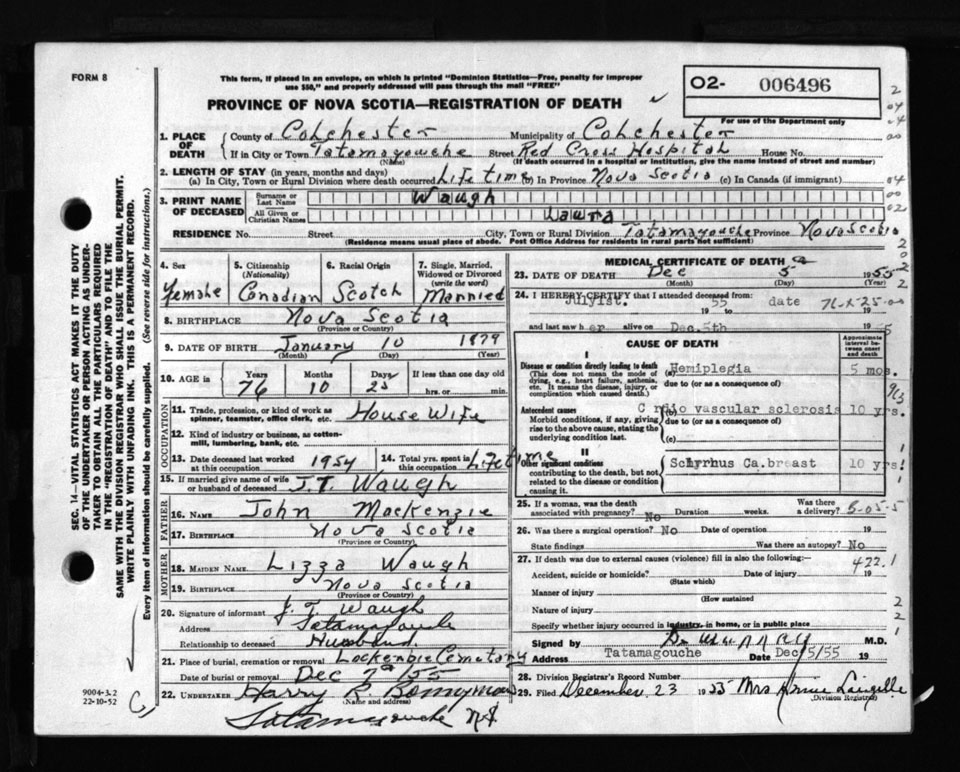 FORM 8
This form, if placed in an envelope, on which is printed "Dominion Statistics—Free, penalty for improper
use $50," and properly addressed will pass through the mail "FREE"
O2- 006496
For use of the Department only
PROVINCE OF NOVA SCOTIA—REGISTRATION OF DEATH
1. PLACE OF DEATH
County of Colchester Municipality of Colchester
If in City or Town Tatamagouche Street Red Cross Hospital House No.
(Name) (If death occurred in a hospital or institution, give the name instead of street and number)
2. LENGTH OF STAY (in years, months and days)
(a) In City, Town or Rural Division where death occurred Life time (b) In Province Nova Scotia (c) In Canada (if immigrant)
3. PRINT NAME OF DECEASED
Surname or Last Name Waugh
All Given or Christian Names Laura
RESIDENCE No. Street City, Town or Rural Division Tatamagouche Province Nova Scotia
(Residence means usual place of abode. Post Office Address for residents in rural parts not sufficient)
4. Sex Female
5. Citizenship (Nationality) Canadian
6. Racial Origin Scotch
7. Single, Married, Widowed or Divorced (write the word) Married
8. BIRTHPLACE Nova Scotia
(Province or Country)
9. DATE OF BIRTH January 10 1879
(Month) (Day) (Year)
10. AGE in Years Months Days If less than one day old
76 10 25 hrs. or min.
OCCUPATION
11. Trade, profession, or kind of work as spinner, teamster, office clerk, etc. House Wife
12. Kind of industry or business, as cotton-mill, lumbering, bank, etc.
13. Date deceased last worked at this occupation 1954
14. Total yrs. spent in this occupation Life time
15. If married give name of wife or husband of deceased J.T. Waugh
FATHER
16. NAME John Mackenzie
17. BIRTHPLACE Nova Scotia
(Province or Country)
MOTHER
18. MAIDEN NAME Lizza Waugh
19. BIRTHPLACE Nova Scotia
(Province or Country)
20. Signature of informant J. T. Waugh
Address Tatamagouche
Relationship to deceased Husband.
21. Place of burial, cremation or removal Lockerbie Cemetary
Date of burial or removal Dec 7 1955
22. UNDERTAKER Harry R. Bonnyman
(Name and address)
Tatamagouche N.S.
MEDICAL CERTIFICATE OF DEATH
23. DATE OF DEATH Dec 5 1955
(Month) (Day)
24. I HEREBY CERTIFY that I attended deceased from:
July 1st. 1955 to date 19
and last saw her alive on Dec. 5th 195
CAUSE OF DEATH
Approximate interval between onset and death
I
Disease or condition directly leading to death
(This does not mean the mode of dying, e.g., heart failure, asthenia, etc. It means the disease, injury, or complication which caused death.)
(a) Hemiplegia 5 mos.
due to (or as a consequence of)
Antecedent causes
Morbid conditions, if any, giving rise to the above cause, stating the underlying condition last.
C rdio vascular sclerosis 10 yrs.
due to (or as a consequence of)
(c)
II
Other significant conditions
contributing to the death, but not related to the disease or condition causing it.
Schyrhus Ca.breast 10 yrs
25. If a woman, was the death associated with pregnancy? No Duration weeks. Was there a delivery?
26. Was there a surgical operation? No Date of operation 19
State findings Was there an autopsy? No
27. If death was due to external causes (violence) fill in also the following:—
422.1
Accident, suicide or homicide? Date of injury 19
(State which)
Manner of injury
(How sustained
Nature of injury
Specify whether injury occurred in industry, in home, or in public place
Signed by M.D.
Address Tatamagouche Date Dec/5/55 19
28. Division Registrar's Record Number
29. Filed December 23 1955 Mrs
(Division Registrar)
SEC. 14—VITAL STATISTICS ACT MAKES IT THE DUTY
OF THE UNDERTAKER OR PERSON ACTING AS UNDER-
TAKER TO OBTAIN ALL THE PARTICULARS REQUIRED
IN THE "REGISTRATION OF DEATH" AND TO FILE THE
SAME WITH THE DIVISION REGISTRAR WHO SHALL ISSUE THE BURIAL PERMIT.
WRITE PLAINLY WITH UNFADING INK. THIS IS A PERMANENT RECORD.
Every item of information should be carefully supplied. (See reverse side for instructions.)
9004-3.2
22-10-52